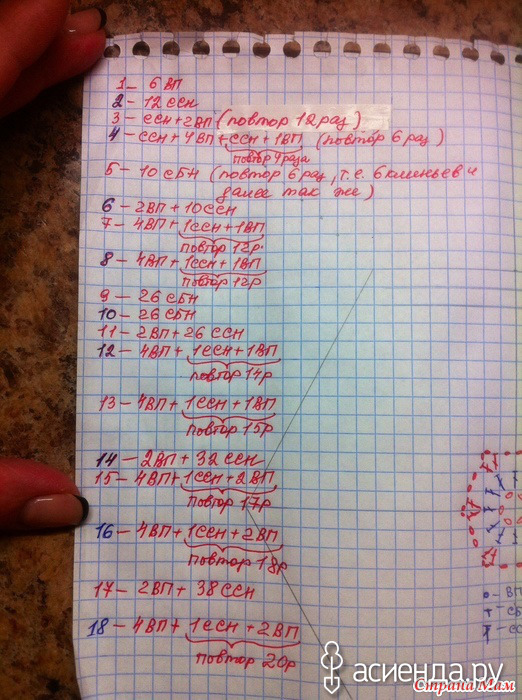 1 – 6 ВП
2 – 12 ССН
3 – ССН + 2ВП (повтор 12 раз)
4 – ССН + 4ВП + ССН + 1ВП (повтор 6 раз)
повтор 4 раза
5 – 10 СБН (повтор 6 раз, т.е. 6 клиньев и
далее так же)
6 – 2ВП + 10ССН
7 – 4ВП + 1ССН + 1ВП
повтор 12р.
8 – 4ВП + 1ССН + 1ВП
повтор 12р
9 – 26 СБН
10 – 26 СБН
11 – 2ВП + 26 ССН
12 – 4ВП + 1ССН + 1ВП
повтор 14р
13 – 4ВП + 1ССН + 1ВП
повтор 15р
14 – 2ВП + 32ССН
15 – 4ВП + 1ССН + 2ВП
повтор 17р
16 – 4ВП + 1ССН + 2ВП
повтор 18р
17 – 2ВП + 38ССН
18 – 4ВП + 1ССН + 2ВП
повтор 20р
ВП
СБ
СС
асиенда.ру
Страна Мам